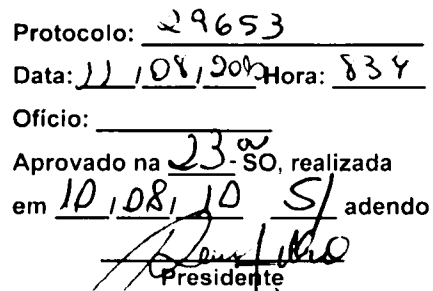 Protocolo: 29653
Data: 11/08/ Hora: 834
Ofício:
Aprovado na 23ª SO, realizada
em 10/08/10 S/ adendo
Presidente